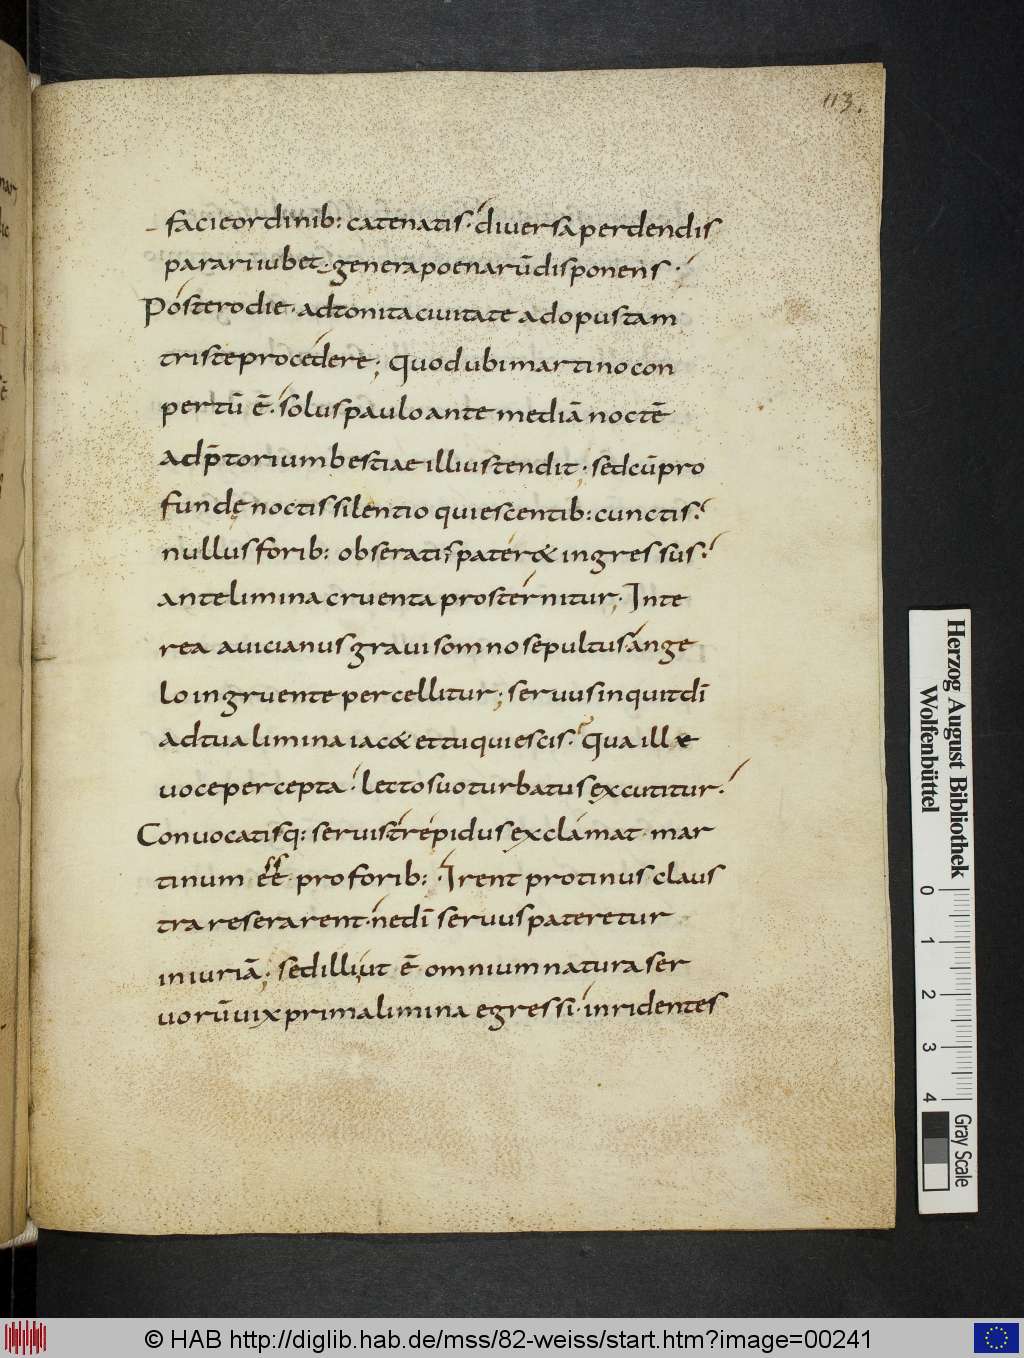 113.
facieordinib: catenatis· diversa perdendis
parari iubet· genera poenarū disponens·
Postero die· adtonita civitate ad opus tam
triste procedere; Quod ubi martino con
pertū ē· solus paulo ante mediā noctē
ad p̄torium bestiae illius tendit; sed cū pro
fundę noctis silentio quiescentib: cunctis·
nullus forib: obseratis pater& ingressus·
ante limina cruenta prosternitur; Inte
rea avicianus gravi somno sepultus ange
lo ingruente percellitur; servus inquit dī
ad tua limina iac& et tu quiescis· Qua ille
voce percepta· lecto suo turbatus excutitur·
Convocatisq: servis trepidus exclamat· mar
tinum eē pro forib: · Irent protinus claus
tra reserarent· ne dī servus pateretur
iniuriā; sed illi, ut ē omnium natura ser
vorū vix prima limina egressi· inridentes
Herzog August Bibliothek
Wolfenbüttel
0 1 2 3 4
Gray Scale
© HAB http://diglib.hab.de/mss/82-weiss/start.htm?image=00241